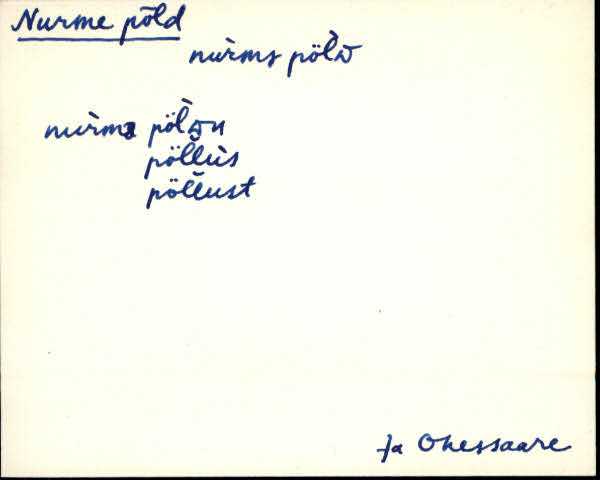 Nurme põld
nùrmɜ pöl̀D
nùrmɜ pöl̀Dɜ
pöl̆lùs
pöl̆lust
Ja Ohessaare